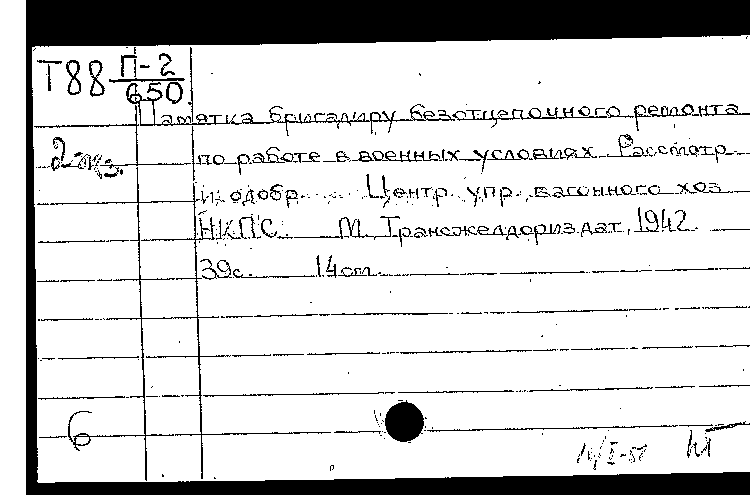 Т88 П-2
650
Памятка бригадиру безотцепочного ремонта
2 экз. по работе в военных условиях. Рассмотр.
и одобр. ... Центр. упр. вагонного хоз.
НКПС. М. Трансжелдориздат, 1942.
39с. 14см.
6